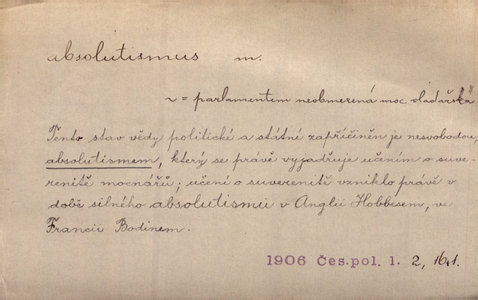 absolutismus m.
~ = parlamentem neobmezená moc vladařská
Tento stav vědy politické a státní zapříčiněn je nesvobodou,
absolutismem, který se právě vyjadřuje učením o suve-
renitě mocnářů; učení o suverenitě vzniklo právě v
době silného absolutismu v Anglii Hobbesem, ve
Francii Bodinem.
1906 Čes. pol. 1. 2, 16.1.